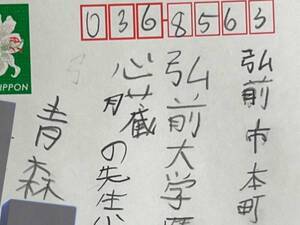 NIPPON
036-8563
弘前市本町
弘前大学
心臓の先生
青森